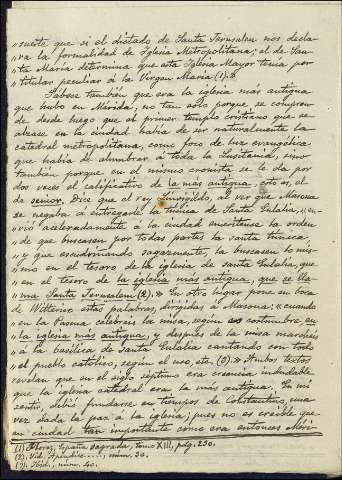 "suerte que si el dictado de Santa Jerusalen nos decla-
"ra la formalidad de Iglesia Metropolitana; el de San-
"ta María determina que esta Iglesia Mayor tenía por
"titular peculiar á la Virgen María (1)."
Sábese también que era la iglesia más antigua
que hubo en Mérida, no tan sólo porque se compren-
de desde luego que el primer templo cristiano que se
alzase en la ciudad había de ser naturalmente la
catedral metropolitana, como foco de luz evangélica
que había de alumbrar á toda la Lusitania, sino
también porque en el mismo cronista se le da por
dos veces el calificativo de la más antigua, esto es, el
de senior. Dice que el rey Leovigildo, al ver que Masona
se negaba á entregarle la túnica de Santa Eulalia, "en-
vió aceleradamente á la ciudad emeritense la orden
"de que buscasen por todas partes la santa túnica
"y que escudriñando sagazmente, la buscasen lo mis-
"mo en el tesoro de la iglesia de santa Eulalia, que
"en el tesoro de la iglesia más antigua, que se lla-
"ma Santa Jerusalem (2)." En otro lugar pone en boca
de Witterico estas palabras, dirigidas á Masona: "cuando
"en la Pascua celebréis la misa, según es costumbre, en
"la iglesia más antigua, y después de la misa marchéis
"á la basílica de Santa Eulalia cantando con todo
"el pueblo católico, según el uso, etc. (3)." Ambos textos
revelan que en el siglo séptimo era creencia indudable
que la iglesia catedral era la más antigua. En mi
sentir, debió fundarse en tiempos de Constantino, una
vez dada la paz á la iglesia; pues no es creíble que
en ciudad tan importante como era entonces Méri-
(1) Flórez, España Sagrada, tomo XIII, pág. 230.
(2) Vid. Apéndice ...., núm. 30.
(3) Ibid., núm. 40.